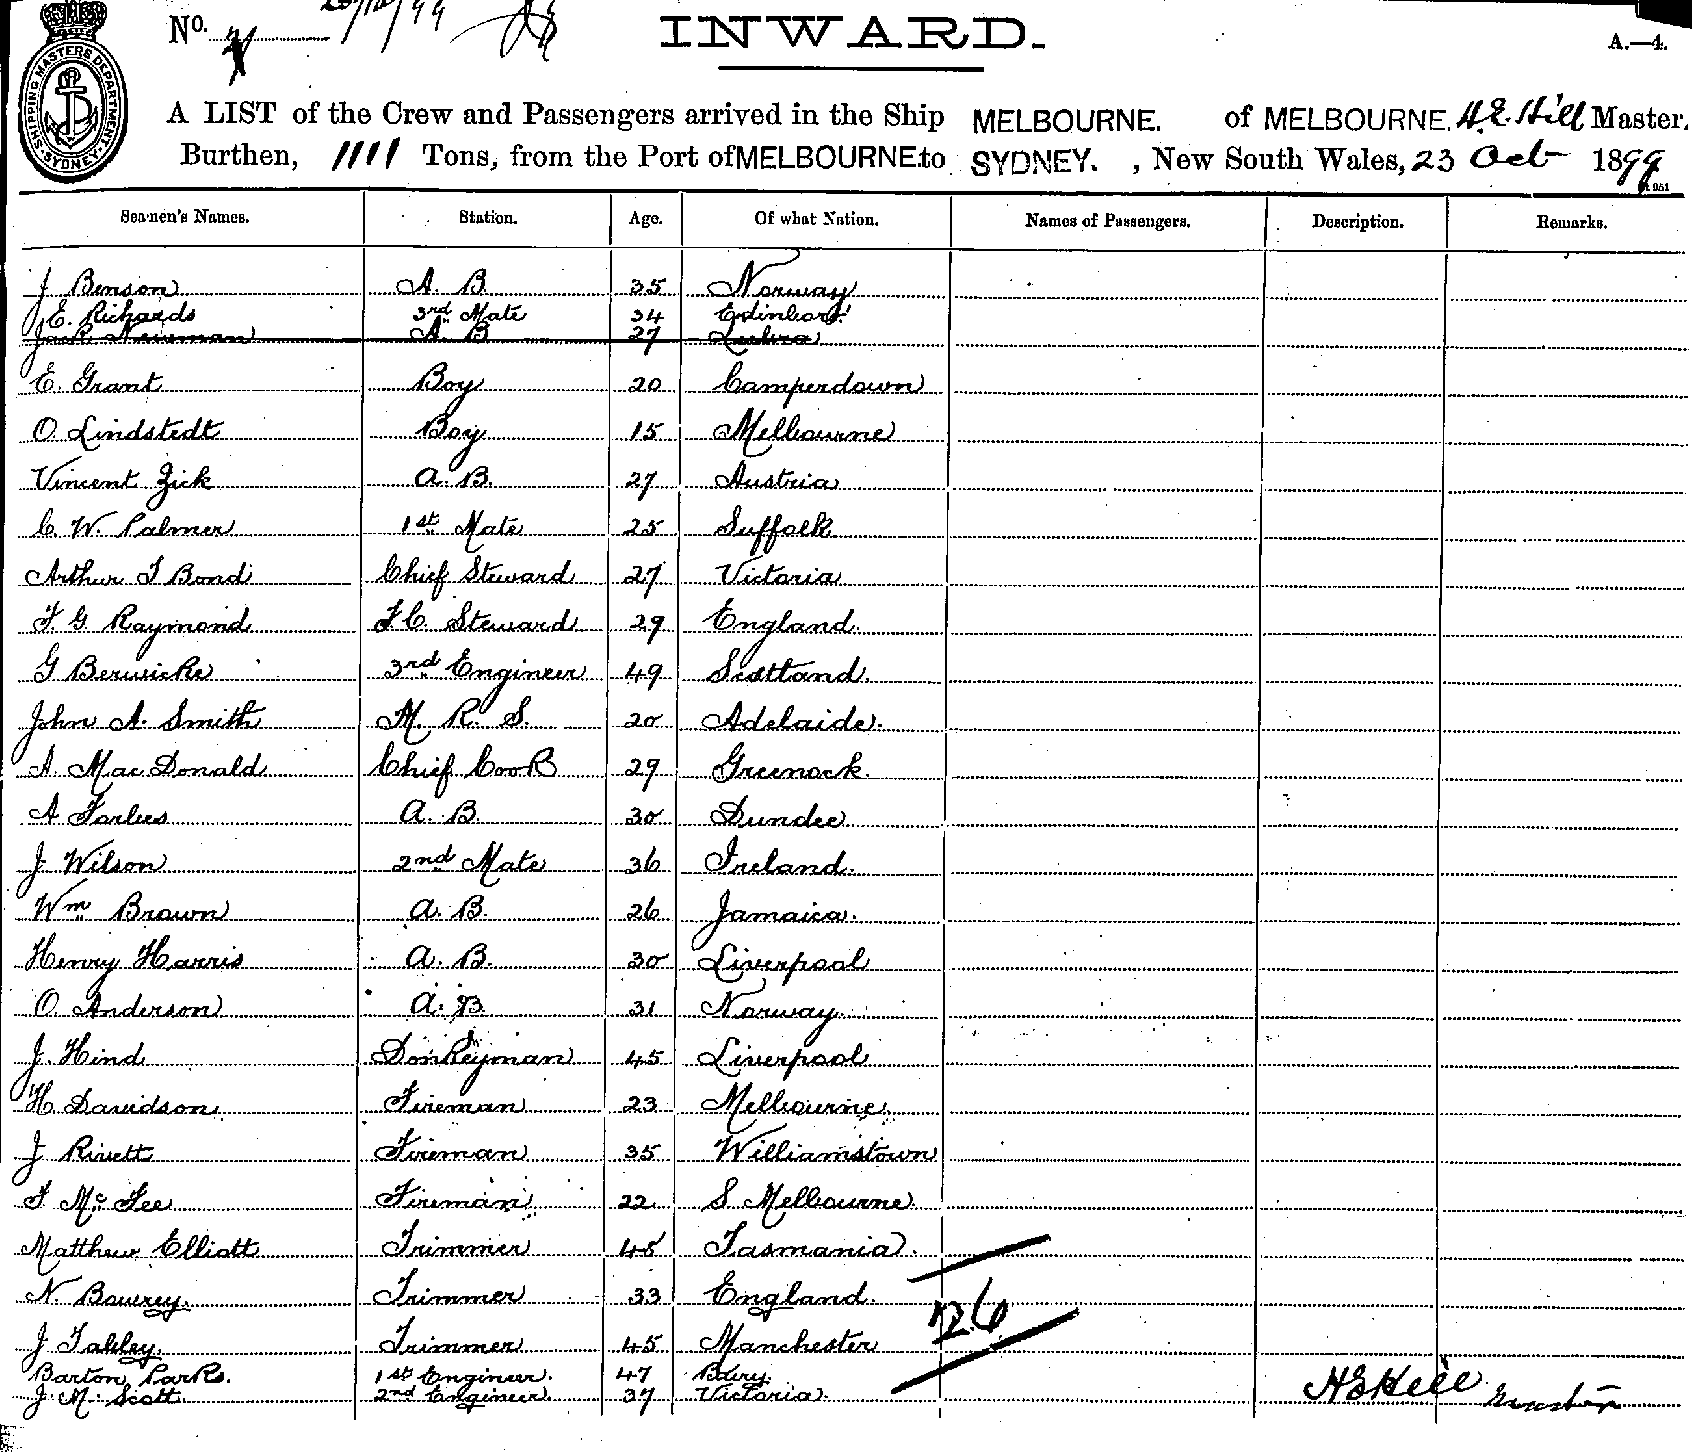 No. 25/10/99
INWARD.
A.—4.
SHIPPING MASTERS DEPARTMENT. SYDNEY.
A LIST of the Crew and Passengers arrived in the Ship MELBOURNE. of MELBOURNE. H.E. Hill Master,
Burthen, 1111 Tons, from the Port of MELBOURNE to SYDNEY. , New South Wales, 23 Oct 1899
Seamen's Names. Station. Age. Of what Nation. Names of Passengers. Description. Remarks.
J Benson A. B. 35 Norway
E. Richards 3rd Mate 34
Jack Newman A. B 27
E. Grant Boy 20 Camperdown
O Lindstedt Boy 15 Melbourne
Vincent Zick A. B. 27 Austria
C. W. Palmer 1st Mate 25 Suffolk
Arthur J Bond Chief Steward 27 Victoria
F. G Raymond F.C. Steward 29 England.
G Berwicke 3rd Engineer 49 Scotland.
John A. Smith M. R. S. 20 Adelaide.
A. MacDonald Chief Cook 29 Greenock.
A Forbes A. B. 30 Dundee
J Wilson 2nd Mate 36 Ireland.
Wm Brown A. B. 26 Jamaica.
Henry Harris A. B. 30 Liverpool
O. Anderson A. B. 31 Norway.
J. Hind Donkeyman 45 Liverpool
H. Davidson Fireman 23 Melbourne.
J Rivett Fireman 35 Williamstown
F McFee Fireman 22 S Melbourne.
Matthew Elliott Trimmer 45 Tasmania.
N. Bowrey. Trimmer 33 England.
26
J Takley. Trimmer 45 Manchester
Barton Park. 1st Engineer. 47 Bury.
J. M. Scott. 2nd Engineer. 37 Victoria.
H E Hill Master